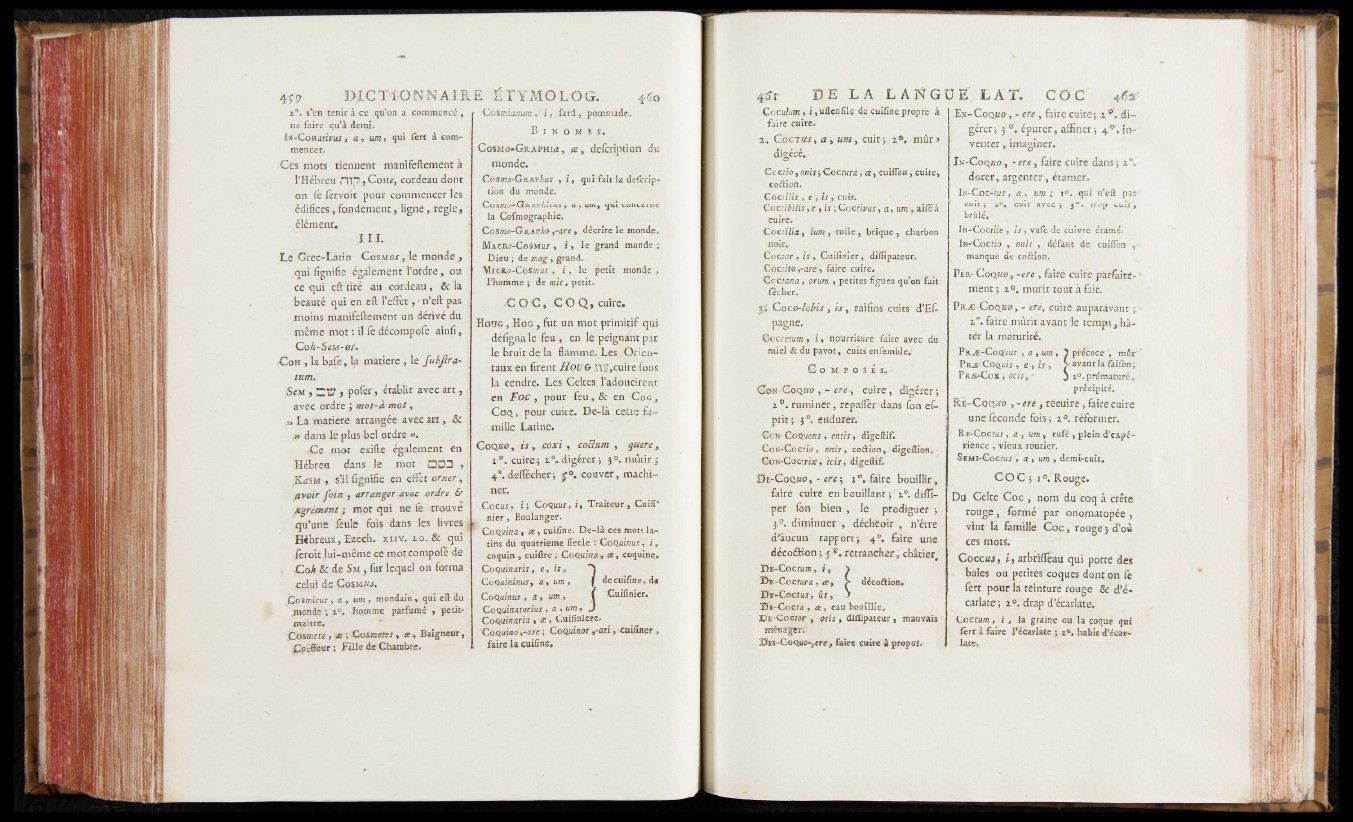 459 DICTIONNAIRE ÉTYMOLOG. 460
2°. s'en tenir à ce qu'on a commencé,
ne faire qu'à demi.
In-Cohativus, a, um, qui sert à com-
mencer.
Ces mots tiennent manifestement à
l'Hébreu קוה, Cohe, cordeau dont
on se servoit pour commencer les
édifices, fondement, ligne, regle,
élément.
III.
Le Grec-Latin Cosmos, le monde,
qui signifie également l'ordre, ou
ce qui est tiré au cordeau, & la
beauté qui en est l'effet, n'est pas
moins manifestement un dérivé du
même mot : il se décompose ainsi,
Coh-Sem-os.
Coh, la base, la matiere, le substra-
tum.
Sem, שם, poser, établir avec art,
avec ordre ; mot-à-mot,
» La matiere arrangée avec art, &
» dans le plus bel ordre ».
Ce mot existe également en
Hébreu dans le mot כסם,
Kasm, s'il signifie en effet orner,
avoir soin, arranger avec ordre &
agrément ; mot qui ne se trouve
qu'une seule fois dans les livres
Hébreux, Ezech. xliv. 20. & qui
seroit lui-même ce mot composé de
Coh & de Sm, sur lequel on forma
celui de Cosmus.
Cosmicus, a, um, mondain, qui est du
monde ; 2°. homme parfumé, petit-
maître.
Cosmeta, æ ; Cosmetes, æ, Baigneur,
Coëffeur ; Fille de Chambre.
Cosmianum, i, fard, pommade.
Binomes.
Cosmo-Graphia, æ, description du
monde.
Cosmo-Graphus, i, qui fait la descrip-
tion du monde.
Cosmo-Graphicus, a, um, qui concerne
la Cosmographie.
Cosmo-Grapho,-are, décrire le monde.
Macro-Cosmus, i, le grand monde ;
Dieu ; de mag, grand.
Micro-Cosmus, i, le petit monde,
l'homme ; de mic, petit.
COC, COQ, cuire.
Houg, Hog, fut un mot primitif qui
désigna le feu, en le peignant par
le bruit de la flamme. Les Orien-
taux en firent Houg עוג, cuire sous
la cendre. Les Celtes l'adoucirent
en Foc, pour feu, & en Cog,
Coq, pour cuire. De-là cette fa-
mille Latine.
Coquo, is, coxi, coctum, quere,
1°. cuire ; 2°. digérer ; 3°. mûrir ;
4°. dessécher ; 5°. couver, machi-
ner.
Cocus, i ; Coquus, i, Traiteur, Cuisi-
nier, Boulanger.
Coquina, æ, cuisine. De-là ces mots la-
tins du quatrieme siecle : Coquinus, i,
coquin, cuistre ; Coquina, æ, coquine.
Coquinaris, e, is,
Coquininus, a, um, } de cuisine, de
Coquinus, a, um, Cuisinier.
Coquinatorius, a, um,
Coquinaria, æ, Cuisiniere.
Coquino,-are ; Coquinor,-ari, cuisiner,
faire la cuisine.
461 DE LA LANGUE LAT. COC 462
Coculum, i, ustensile de cuisine propre à
faire cuire.
2. Coctus, a, um, cuit ; 2°. mûr,
digéré.
Coctio, onis ; Coctura, æ, cuisson, cuite,
coction.
Coctilis, e, is, cuit.
Coctibilis, e, is ; Coctivus, a, um, aisé à
cuire.
Coctilia, ium, tuile, brique, charbon
noir.
Coctor, is, Cuisinier, dissipateur.
Coctito,-are, faire cuire.
Coctana, orum, petites figues qu'on fait
sécher.
3. Coco-lobis, is, raisins cuits d'Es-
pagne.
Cocetum, i, nourriture faite avec du
miel & du pavot, cuits ensemble.
Composés.
Con-Coquo, -ere, cuire, digérer ;
2°. ruminer, repasser dans son es-
prit ; 3°. endurer.
Con-Coquens, entis, digestif.
Con-Coctio, onis, coction, digestion.
Con-Coctrix, icis, digestif.
De-Coquo, -ere ; 1°. faire bouillir,
faire cuire en bouillant ; 2°. dissi-
per son bien, le prodiguer ;
3°. diminuer, déchéoir, n'être
d'aucun rapport ; 4°. faire une
décoction ; 5°. retrancher, châtier.
De-Coctum, i,
De-Coctura, æ, } décoction.
De-Coctus, ûs,
De-Cocta, æ, eau bouillie.
De-Coctor, oris, dissipateur, mauvais
ménager.
Dis-Coquo,-ere, faire cuire à propos.
Ex-Coquo, -ere, faire cuire ; 2°. di-
gérer ; 3°. épurer, affiner ; 4°. in-
venter, imaginer.
In-Coquo, -ere, faire cuire dans ; 2°.
dorer, argenter, étamer.
In-Coc-tus, a, um ; 1°. qui n'est pas
cuit ; 2°. cuit avec ; 3°. trop cuit,
brûlé.
In-Coctile, is, vase de cuivre étamé.
In-Coctio, onis, défaut de cuisson,
manque de coction.
Per-Coquo, -ere, faire cuire parfaite-
ment ; 2°. murir tout à fait.
Præ-Coquo, -ere, cuire auparavant ;
2°. faire mûrir avant le temps, hâ-
tér la maturité.
Præ-Coquus, a, um, } précoce, mûr
Præ-Coquis, e, is, avant la saison ;
Præ-Cox, ocis, 2°. prématuré,
précipité.
Re-Coquo, -ere, recuire, faire cuire
une seconde fois ; 2°. réformer.
Re-Coctus, a, um, rusé, plein d'expé-
rience, vieux routier.
Semi-Coctus, a, um, demi-cuit.
COC ; 1°. Rouge.
Du Celte Coc, nom du coq à crête
rouge, formé par onomatopée,
vint la famille Coc, rouge ; d'où
ces mots.
Coccus, i, arbrisseau qui porte des
baies ou petites coques dont on se
sert pour la teinture rouge & d'é-
carlate ; 2°. drap d'écarlate.
Coccum, i, la graine ou la coque qui
sert à faire l'écarlate ; 2°. habit d'écar-
late.